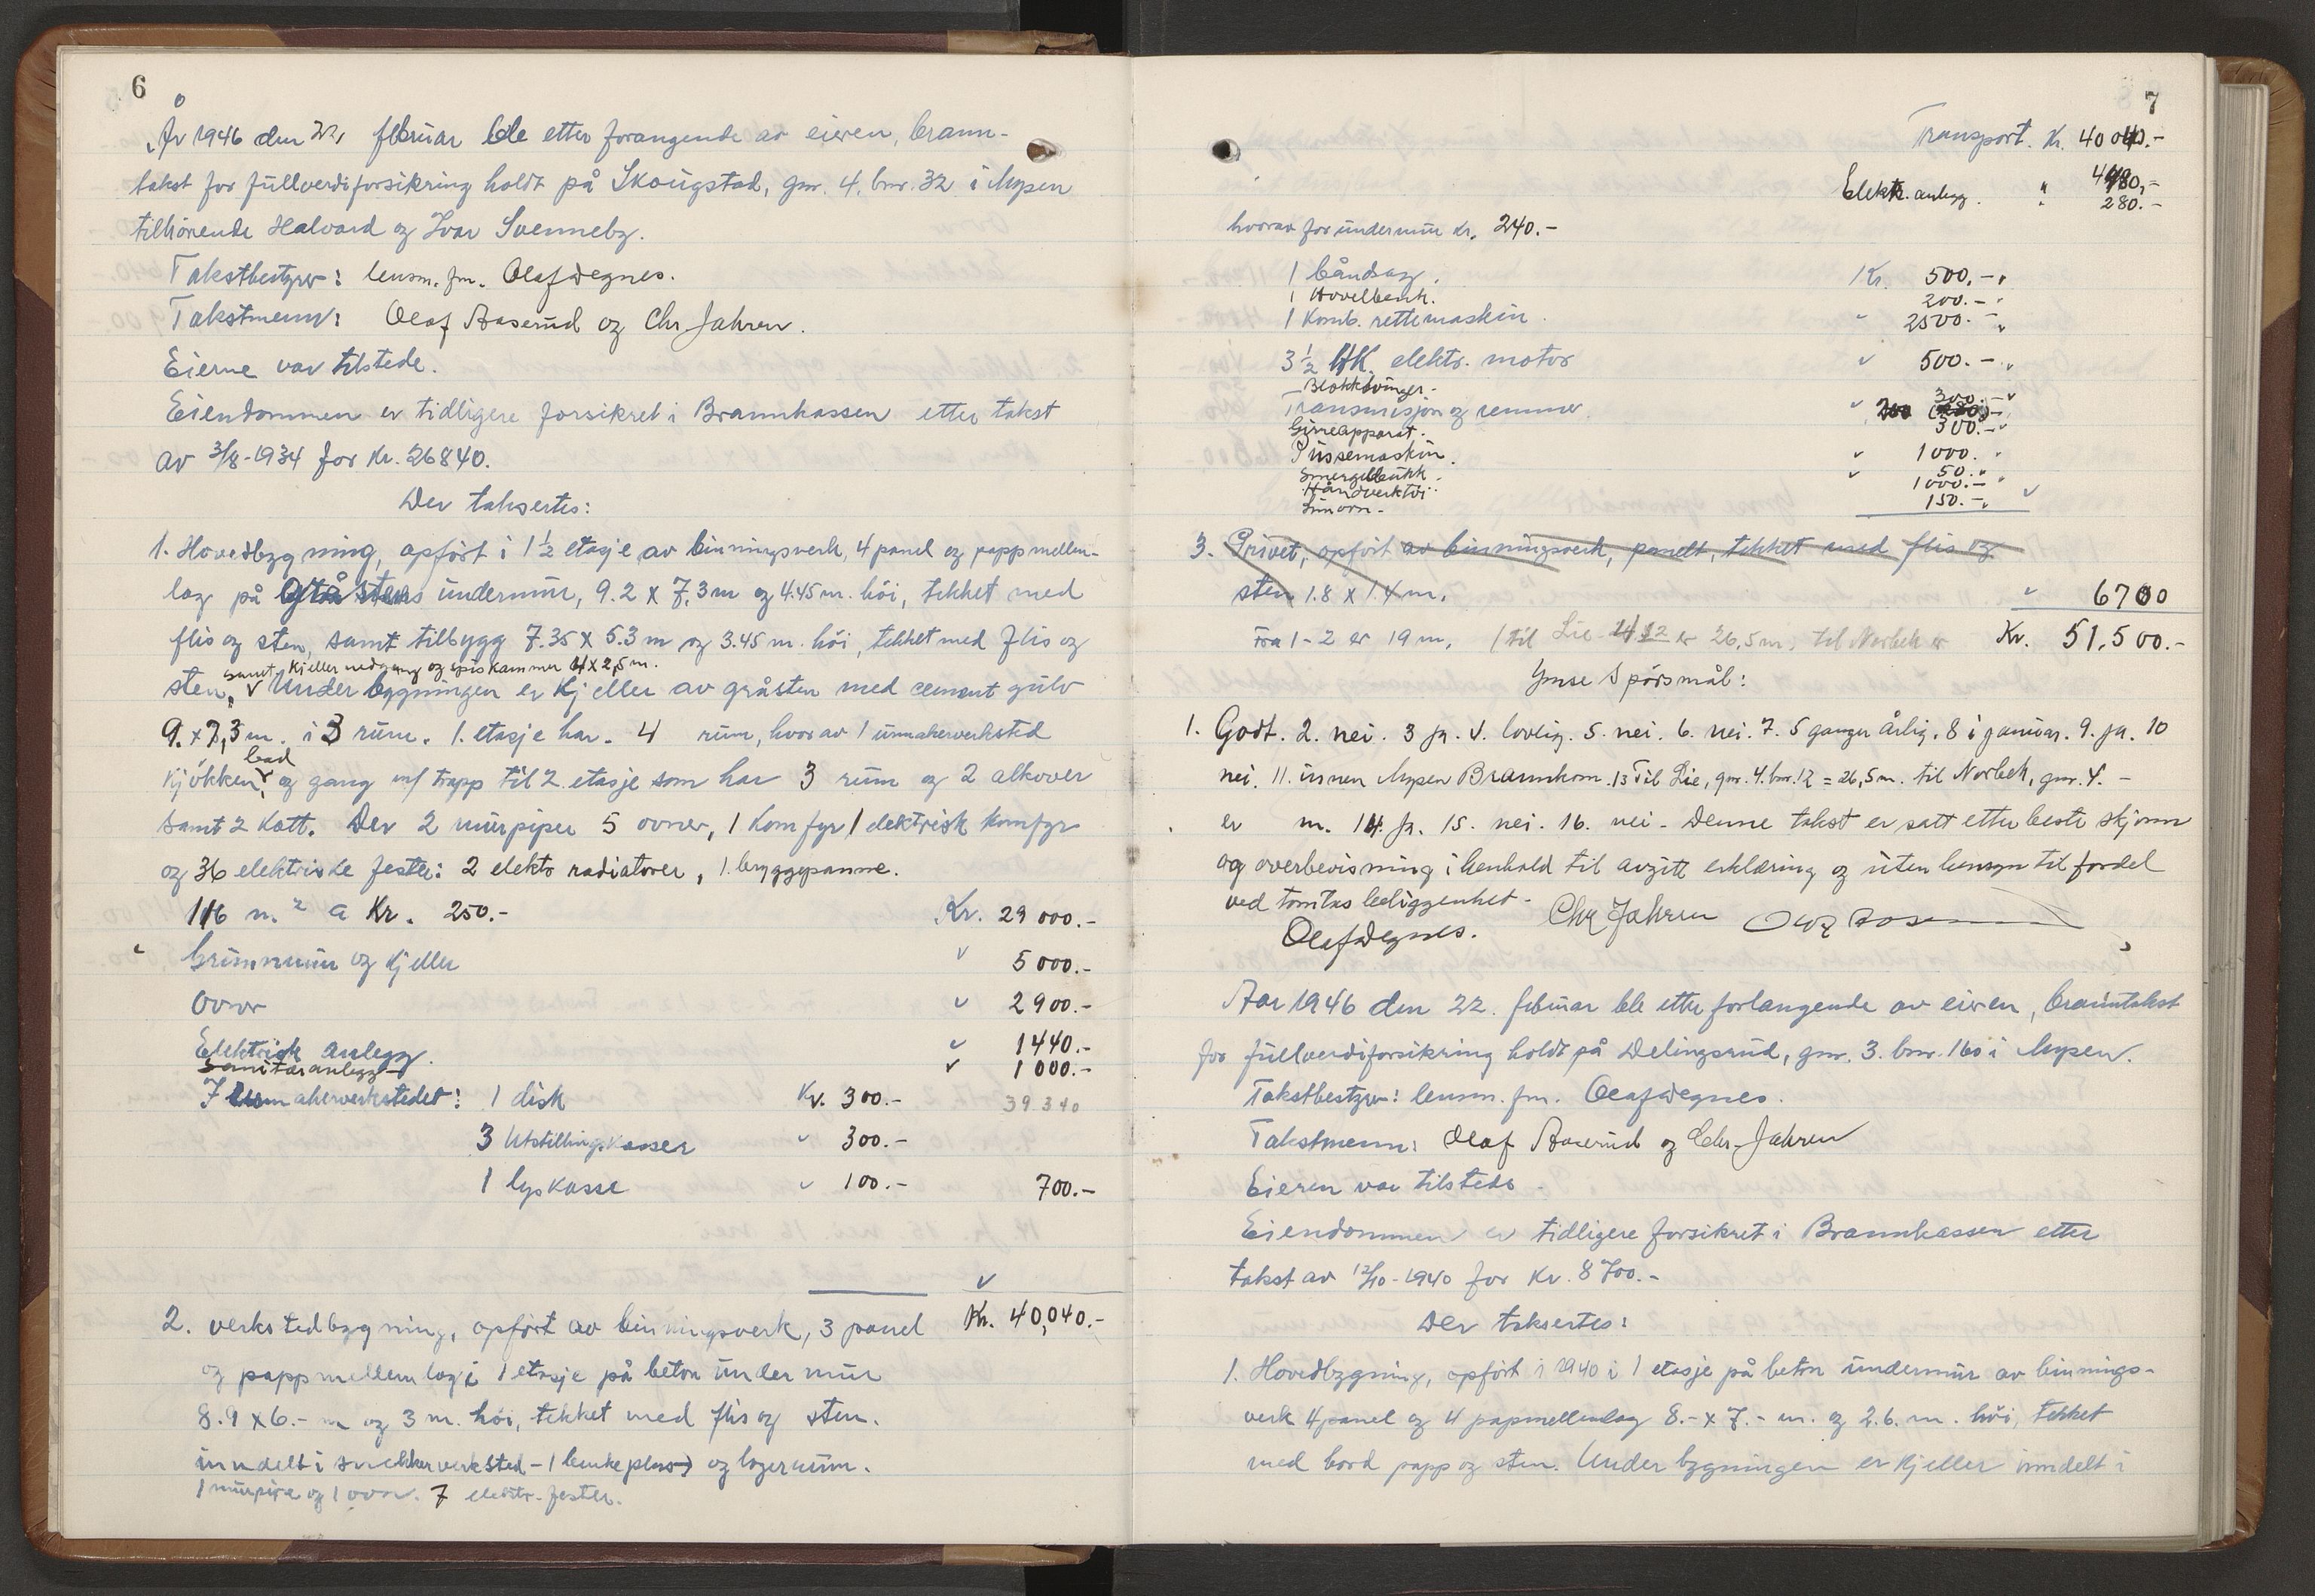 6
År 1946 den 22, februar ble etter forangende av eieren, brann-
takst for fullverdiforsikring holdt på Skougstad, gnr. 4. bnr. 32 i Mysen
tilhörende Halvard og Ivar Svenneby.
Takstbestyrer: lensm. fm. Olaf Degnes.
Takstmenn: Olaf Aaserud og Chr Jahren.
Eierne var tilstede.
Eiendommen er tidligere forsikret i Brannkassen etter takst
av 3/8-1934 for Kr. 26840.
Der taksertes:
1. Hovedbygning, opfört i 1½ etasje av binningsverk, 4 panel og pappmellem-
lag på gråstens undermur, 9.2 x 7,3m og 4.45 m. höi, tekket med
flis og sten, samt tilbygg 7.35 x 5.3 m og 3.45 m. höi, tekket med flis og
samt kjeller nedgang og spiskammer 4 x 2,5 m.
sten. Under bygningen er Kjeller av gråsten med cement gulv
9. x 7,3 m. i 3 rum. 1. etasje har 4 rum, hvorav 1 urmakerverksted
bad
Kjökken, og gang m/ trapp til 2. etasje som har 3 rum og 2 alkover
samt 2 Kott. Der 2 murpiper 5 ovner, 1 Komfyr 1 elektrisk komfyr
og 36 elektriske fester: 2 elektr radiatorer, 1. bryggepanne.
116 m.² a Kr. 250.- Kr. 29 000.-
Grunnmur og Kjeller " 5 000.-
Ovner " 2 900.-
Elektrisk anlegg. " 1440.-
Sanitæranlegg " 1 000.-
I urmakerverkstedet: 1 disk Kr. 300.- 39 340
3 Utstillingskasser " 300.-
1 lyskasse " 100.- 700.-
Kr. 40,040.-
2. verkstedbygning, opfört av binningsverk, 3 panel
og pappmellemlag i 1 etasje på beton undermur
8.9 x 6.- m og 3 m. höi, tekket med flis og sten.
inndelt i snekkerverksted - (1 benkeplass) og lagerrum.
1 murpipe og 1 ovn. 7 elektr. fester.
7
Transport. Kr. 40 040.-
4480,-
Elektr. anlegg. " 280.-
hvorav for undermur kr. 240.-
1 båndsag. Kr. 500,-
1 Hövelbenk. 200.-
1 Komb. rettemaskin. " 2500.-
3½ HK. elektr. motor " 500.-
Blokktvinger. 300.-
Transmisjon og remmer. " 200
Gireapparat. 300.-
Pussemaskin. " 1000.
Smergelbukk. " 50.
Håndverktöi. 1000.-
Limovn. 150.-
3. Privet, opfört av binningsverk, panelt, tekket med flis og
sten 1.8 x 1.4 m. " 6700
Fra 1-2 er 19 m. (til Lie 4/12 er 26,5 m. til Norbek er Kr. 51,500.-
Ymse Spörsmål:
1. Godt. 2. nei. 3 ja. 4. lovlig. 5. nei. 6. nei. 7. 5 ganger årlig. 8 i januar. 9. ja. 10
nei. 11. innen Mysen Brannkom. 13 Til Lie, gnr. 4. bnr. 12 = 26,5 m. til Norbek, gnr. 4. -
er m. 14. ja. 15. nei. 16. nei - Denne takst er satt etter beste skjönn
og overbevisning i henhold til avgitt erklæring og uten hensyn til fordel
ved tomtas beliggenhet.
Olaf Degnes. Chr Jahren
Aar 1946 den 22. februar ble etter forlangende av eieren, branntakst
for fullverdiforsikring holdt på Delingsrud, gnr. 3. bnr. 160 i Mysen.
Takstbestyrer: lensm. fm. Olaf Degnes.
Takstmenn: Olaf Aaserud og Chr. Jahren
Eieren var tilstede.
Eiendommen er tidligere forsikret i Brannkassen etter
takst av 12/10-1940 for Kr. 8700.-
Der taksertes:
1. Hovedbygning, opfört i 1940 i 1 etasje på beton undermur av binnings-
verk 4 panel og 4 papmellemlag 8.- x 7.- m. og 2.6. m. höi, tekket
med bord papp og sten. Under bygningen er Kjeller inndelt i